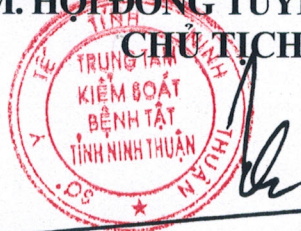 M. HỘI ĐỒNG TUY
CHỦ TỊCH
SỞ Y TẾ TỈNH NINH THUẬN
TRUNG TÂM
KIỂM SOÁT
BỆNH TẬT
TỈNH NINH THUẬN